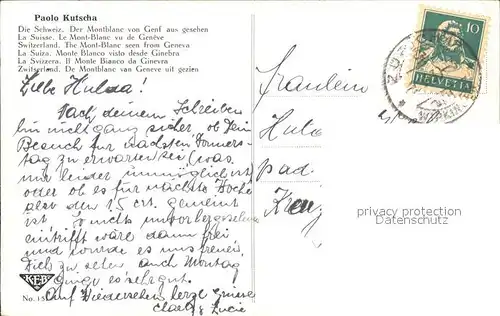 Paolo Kutscha
Die Schweiz. Der Montblanc von Genf aus gesehen
La Suisse. Le Mont-Blanc vu de Genève
Switzerland. The Mont-Blanc seen from Geneva
La Suiza. Monte Blanco visto desde Ginebra
La Svizzera. Il Monte Bianco da Ginevra
Zwitserland. De Montblanc van Geneve uit gezien
Liebe Hulda!
Nach deinem Schreiben
bin nicht ganz sicher, ob Dein
Besuch für nächsten Donners-
tag zu erwarten sei (was
uns leider unmöglich ist)
oder ob es für nächste Woche
also den 15. crt. gemeint
ist. Sonst unvorhergesehenes
eintrifft wäre dann frei
und würde es uns freuen
Dich zu sehen auch Montag
ginge es sehr gut.
Auf Wiedersehen herzl Grüsse
Lucie
KEB
No. 15
Fräulein
10
HELVETIA
privacy protection
DATENSCHUTZ